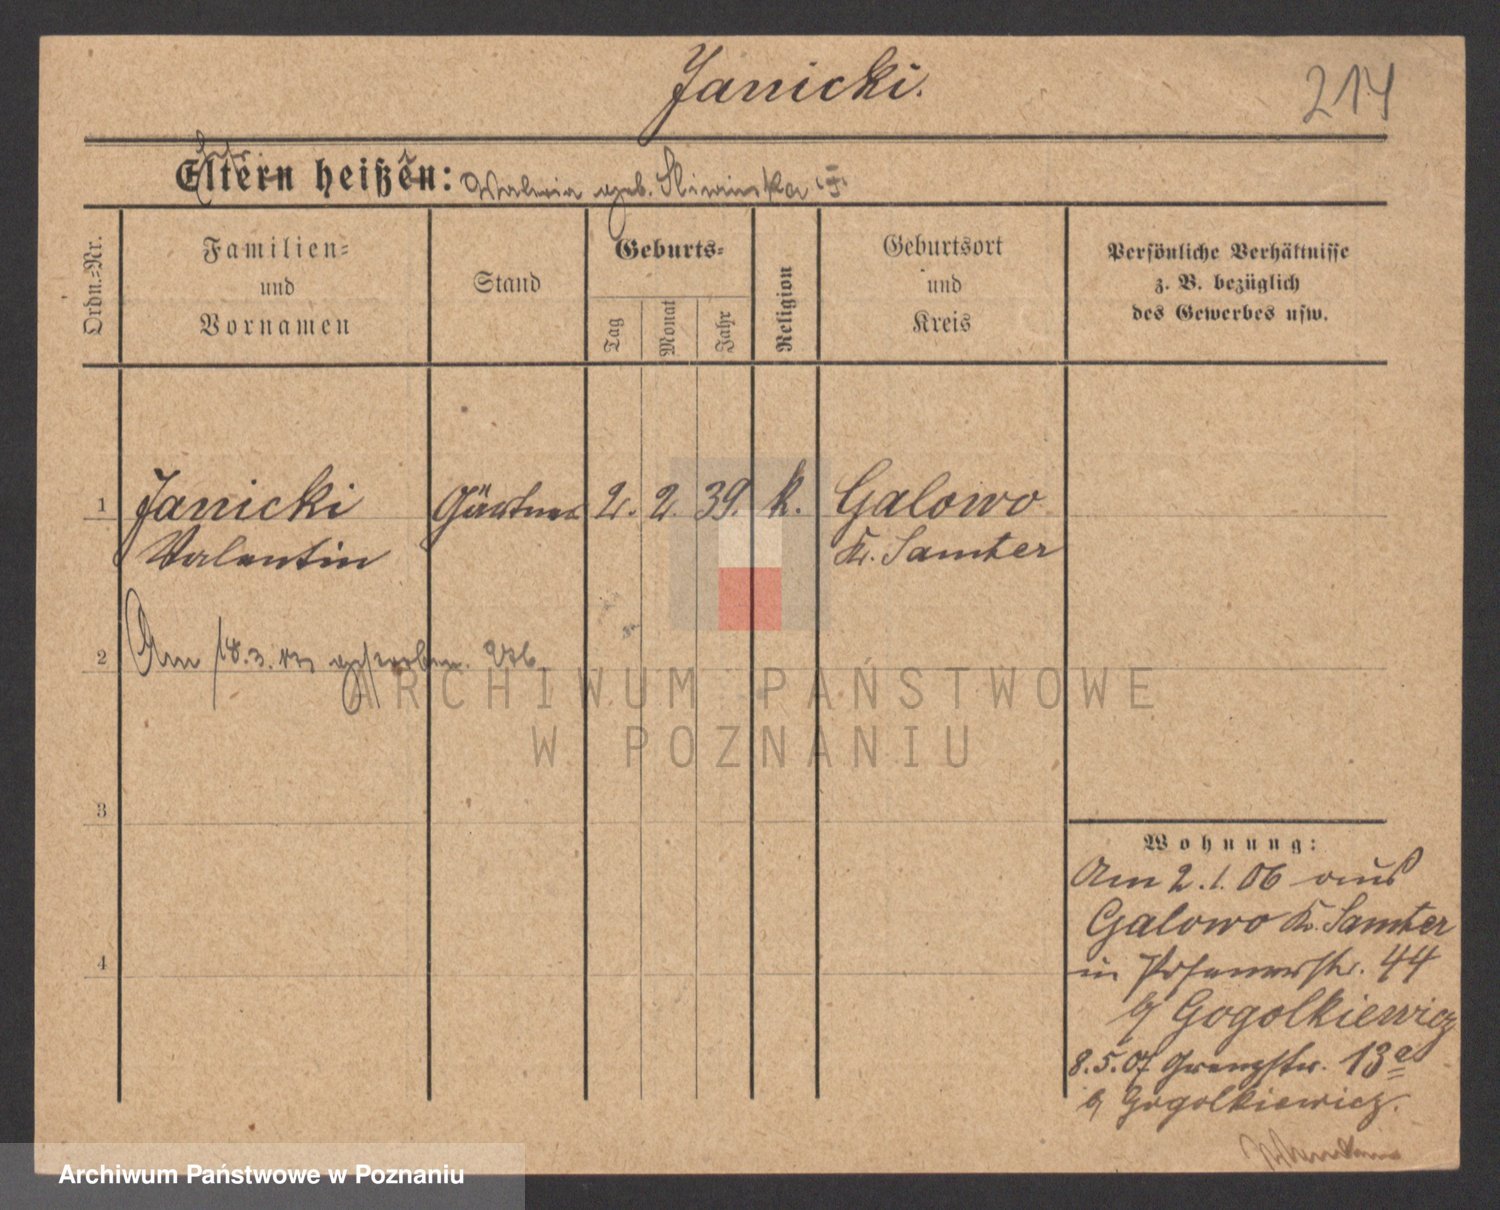 Janicki.
214
Eltern heißen: geb. Sliwinska
Ordn.=Nr.
Familien=
und
Vornamen
Stand
Geburts=
Tag
Monat
Jahr
Religion
Geburtsort
und
Kreis
Persönliche Verhältnisse
z. B. bezüglich
des Gewerbes usw.
1 Janicki Gärtner 2. 2. 39. k. Galowo
Valentin Kr. Samter
2 Am 18.3. gestorben.
3
4
Wohnung:
Am 2.1.06 aus
Galowo Kr. Samter
in Posenerstr. 44
b/ Gogolkiewicz
8.5.07 Grenzstr. 13a
b/ Gogolkiewicz.
ARCHIWUM PAŃSTWOWE
W POZNANIU
Archiwum Państwowe w Poznaniu